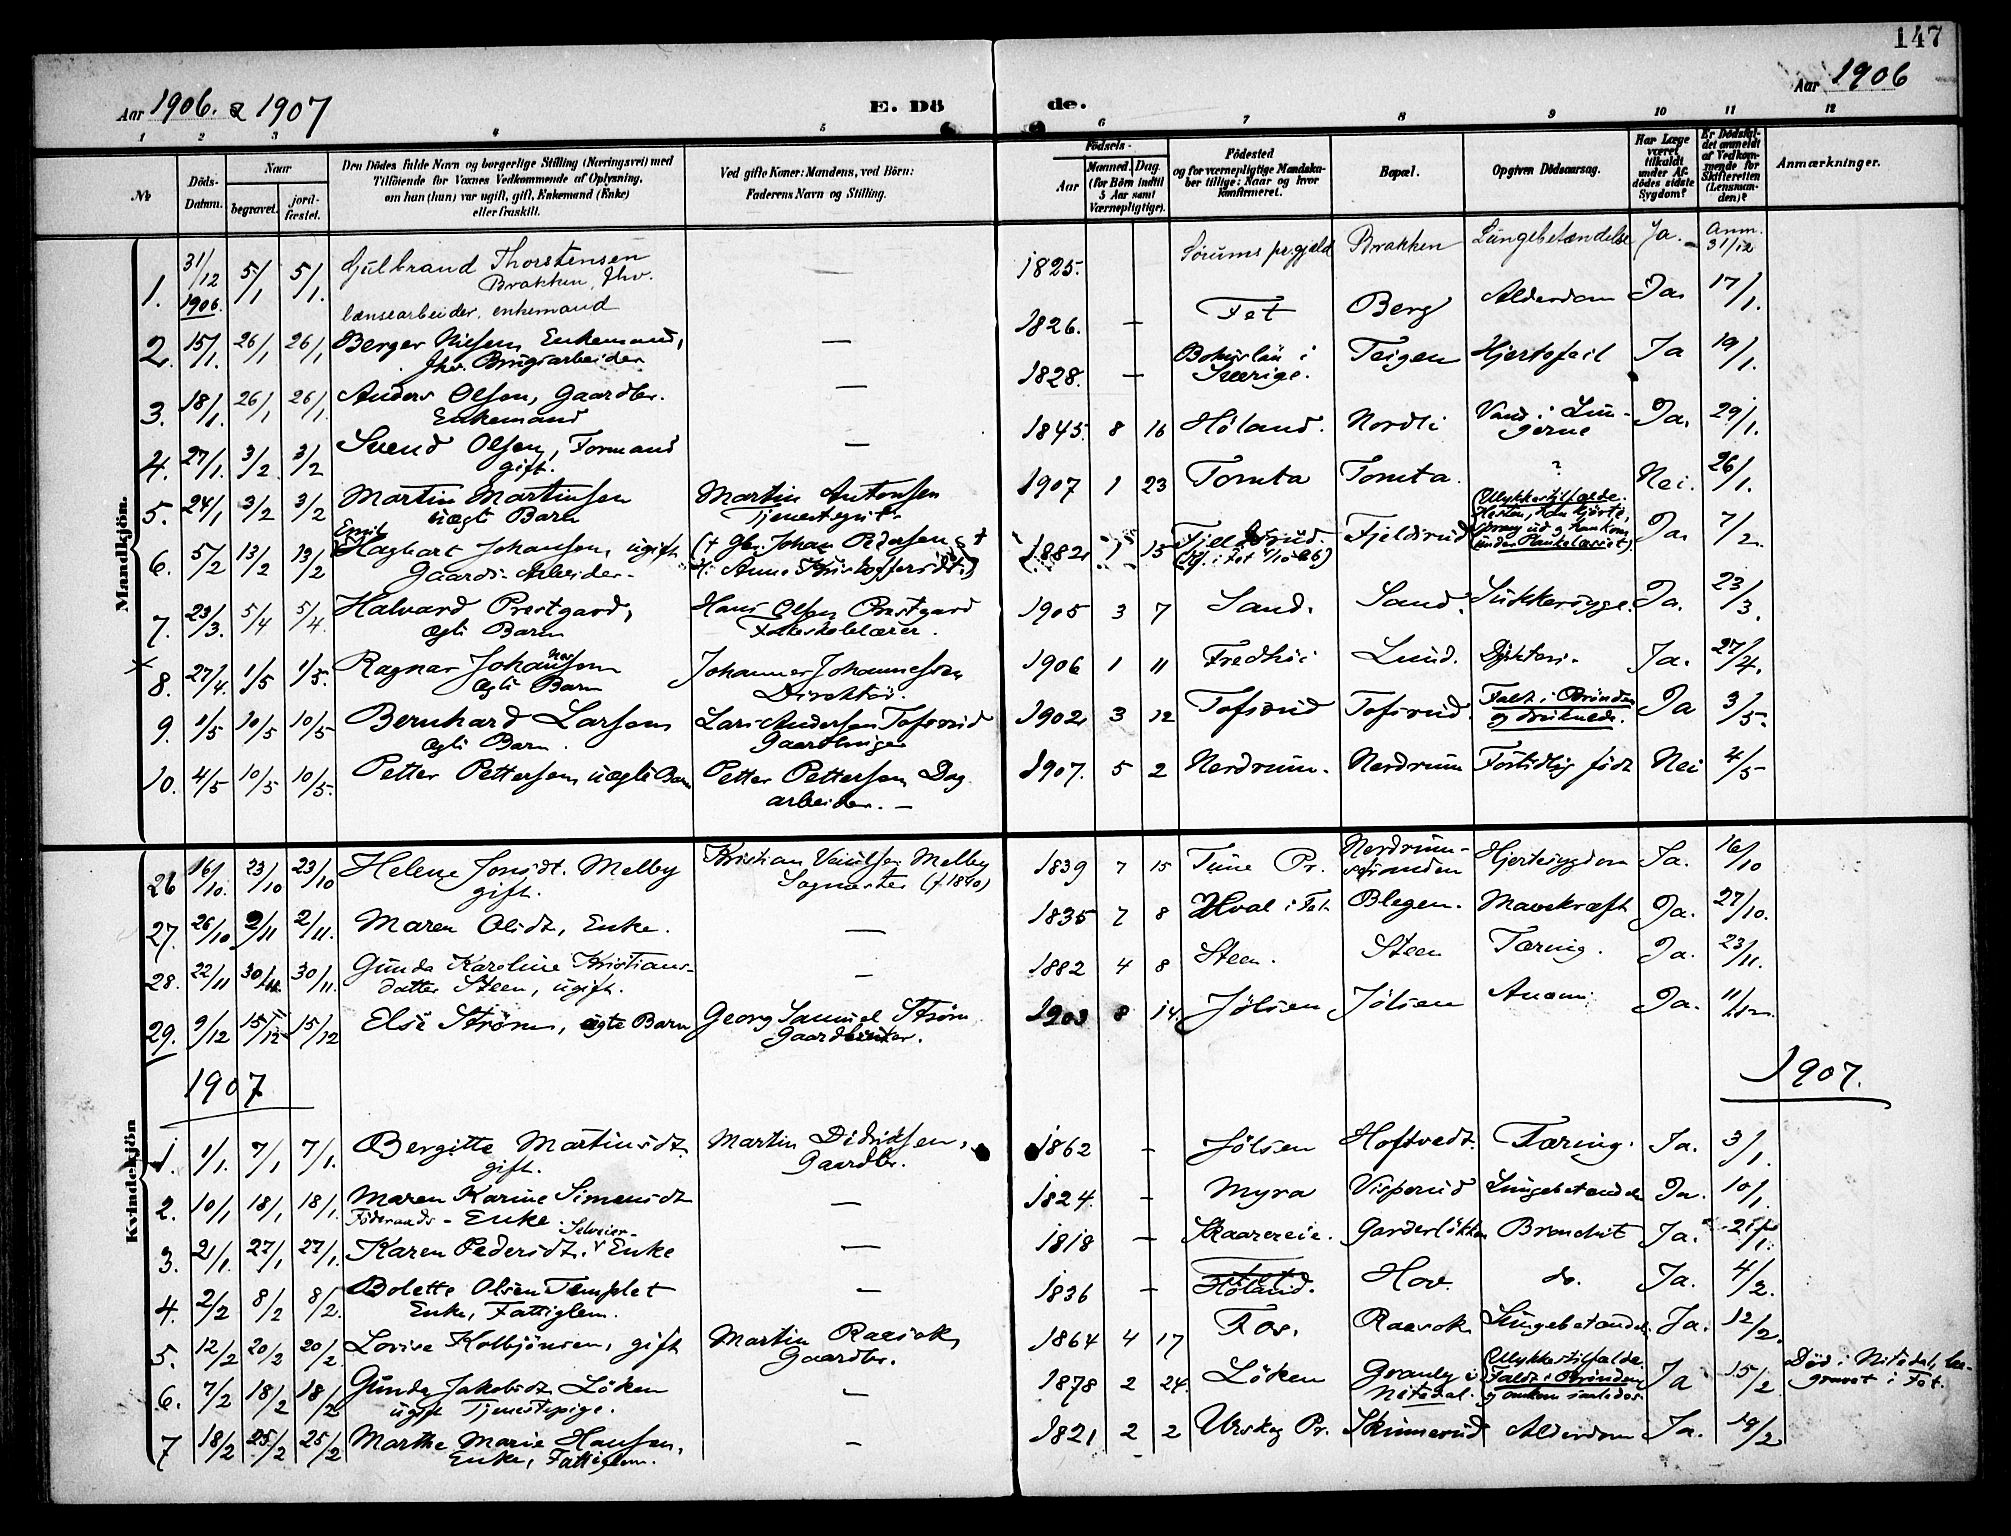 147
Aar 1906. & 1907 E. Dö de. Aar 1906
1 2 3 4 5 6 7 8 9 10 11 12
No Döds-Datum. Naar begravet. jordfæstet. Den Dödes fulde Navn og borgerlige Stilling (Næringsvei) med Tilföiende for Voxnes Vedkommende af Oplysning, om han (hun) var ugift, gift, Enkemand (Enke) eller fraskilt. Ved gifte Koner: Mandens, ved Börn: Faderens Navn og Stilling. Födsels- Aar Maaned. Dag. (for Börn indtil 5 Aar samt Værnepligtige). Födested og for værnepligtige Mandskaber tillige: Naar og hvor konfirmeret. Bopæl. Opgiven Dödsaarsag. Har Læge været tilkaldt under Afdödes sidste Sygdom? Er Dödsfaldet anmeldt af Vedkommende for Skifteretten (Lensmanden)? Anmærkninger.
Mandkjön.
1. 31/12 1906. 5/1 5/1. Gulbrand Thorstensen — 1825. Sørums pr.gjæld Brakken Lungebetændelse Ja. Anm. 31/12
Brakken, Jhv.
lænsearbeider, enkemand
2. 15/1. 26/1 26/1 Berger Nilsen Enkemand, — 1826. — Fet Berg Alderdom Ja. 17/1.
Jhv. Brugsarbeider
3. 18/1. 26/1 26/1. Anders Olsen, Gaardbr. — 1828. — Bohuslän i Sverige. Teigen Hjertefeil Ja 19/1.
Enkemand
4. 27/1. 3/2 3/2 Svend Olsen, Formand — 1845. 8 16 Høland. Nordli Vand i Lungerne Ja. 29/1.
gift.
5. 24/1 3/2 3/2 Martin Martinsen Martin Antonsen 1907 1 23 Tomta Tomta. ? Nei. 26/1.
uægte Barn Tjenestegut.
6. 5/2 13/2 13/2 Hagbart Johansen, ugift (+ Gbr. Johan Pedersen & + 1882 1 15 Fjeldsrud. Fjeldsrud Ulykkestilfælde. Hesten, han kjørte, sprang ud og han kom under Plankelæsset). Ja. 7/2.
Gaards-Arbeider. H. Anne Kristoffersdt.)
7. 23/3. 5/4 5/4. Halvard Prestgard, Hans Olsen Prestgard 1905 3 7 Sand. Sand. Sukkersyge. Ja. 23/3.
ægte Barn Folkeskolelærer.
8. 27/4. 1/5 1/5. Ragnar Johannessen Johannes Johannessen 1906 1 11 Fredhøi Lund. Difteri. Ja. 27/4.
ægte Barn Direktør.
9. 1/5 10/5 10/5 Bernhard Larsen Lars Andersen Tofsrud 1902 3 12 Tofsrud Tofsrud. Faldt i Brønden og druknede. Ja 3/5.
ægte Barn. Gaardbruger
10. 4/5 10/5 10/5. Petter Pettersen, uægte Barn Petter Pettersen Dag 1907. 5 2 Nerdrum. Nerdrum Fortidlig født Nei 4/5
arbeider. —
Kvindekjön
26 16/10. 23/10 23/10 Helene Jonsdt. Melby Kristian Melby 1839 7 15 Tune Pr. Nerdrum-stranden Hjertesygdom Ja. 16/10
gift. (f. 1840)
27. 26/10 2/11 2/11. Maren Olsdt, Enke. — 1835 7 8 Hval i Fet Blegen. Mavekræft Ja. 27/10.
28. 22/11 30/11. 30/11. Gunda Karoline Kristians- — 1882 4 8 Steen. Steen Tæring. Ja. 23/11.
datter Steen, ugift.
29. 9/12 15/12 15/12 Else Strøm, ægte Barn Georg Samuel Strøm 1903 8 14. Jølsen Jølsen Anæmi Ja. 11/12.
Gaardbruker.
1907 1907.
1. 1/1. 7/1 7/1. Bergitte Martinsdt. Martin Didriksen, 1862 — Jølsen Hoftvedt. Tæring. Ja. 3/1.
gift. Gaardbr.
2. 10/1 18/1 18/1. Maren Karine Simensdt — 1824. — Myra Visperud Lungebetændels Ja. 10/1.
Føderaads-Enke.
3. 21/1. 27/1 27/1. Karen Pedersdt. Selveier-Enke — 1818 — Skaarereie. Garderløkken Bronchit Ja.
4. 2/2 8/2 8/2. Bolette Olsen Templet — 1836 — Høland. Hov. do. Ja. 4/2.
Enke, Fattiglem.
5. 12/2 20/2 20/2 Lovise Kolbjønsen, gift Martin Raasok, 1864 4 17 Fos. Raasok Lungebetændels. Ja. 12/2.
Gaardbr.
6. 7/2 18/2 18/2 Gunda Jakobsdt. Løken — 1878 2 24. Løken Granly i Nitedal. Ulykkestilfælde. Faldt i Brønden og omkom saaledes. Ja 15/2 Död i Nitedal, be-
ugift Tjenestepige. gravet i Fet.
7 18/2 25/2 25/2 Marthe Marie Hansen, — 1821 2 2 Urskog Pr. Skinnerud Alderdom Ja. 19/2
Enke, Fattiglem.